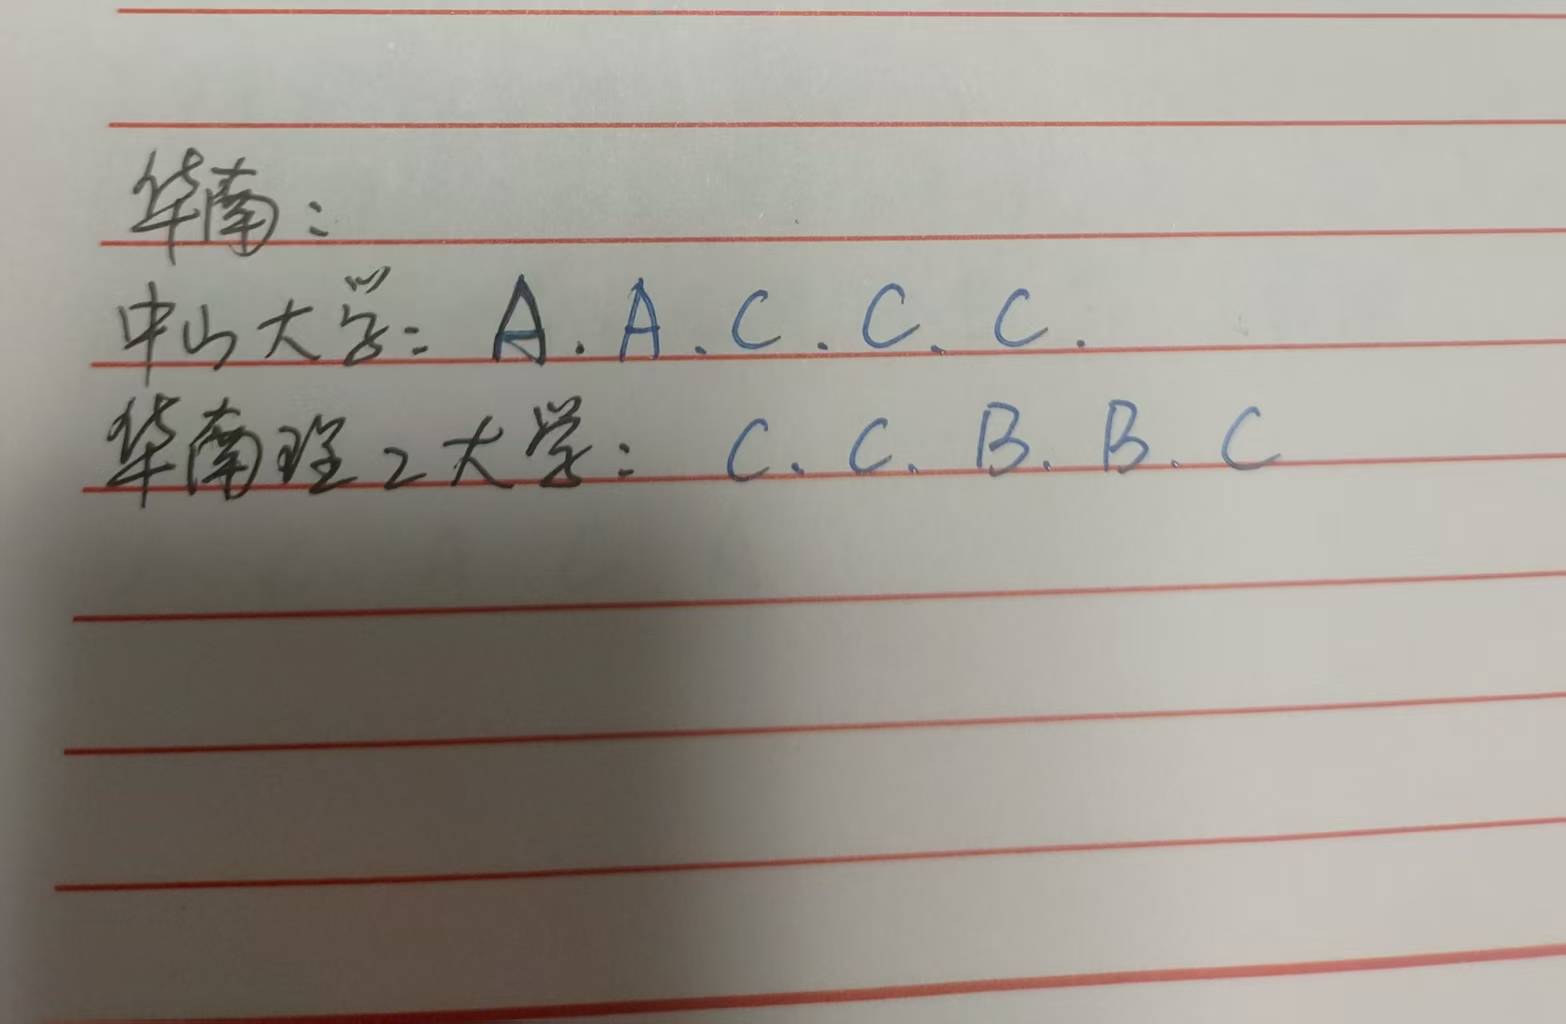 华南：
中山大学：A.A.C.C.C.
华南理工大学：C.C.B.B.C